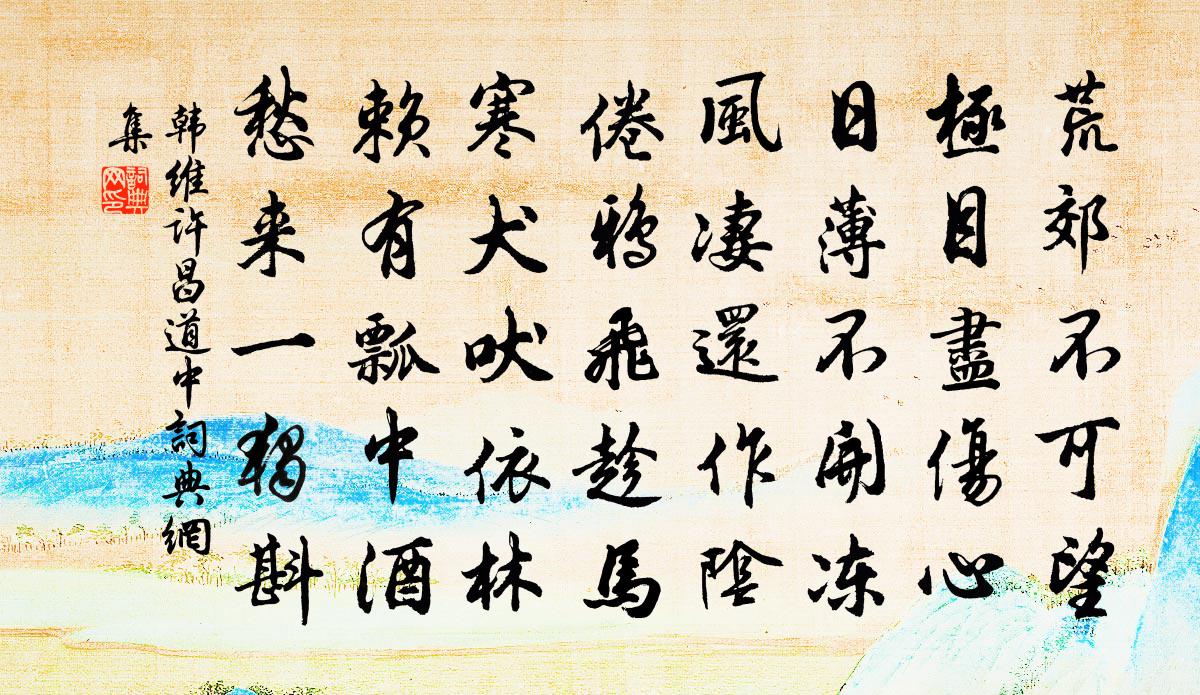 荒郊不可望
極目盡傷心
日薄不開冻
風凄還作陰
倦鴉飛趁馬
寒犬吠依林
赖有瓢中酒
愁来一獨斟
韩維許昌道中詞典網
集
詞典
网印